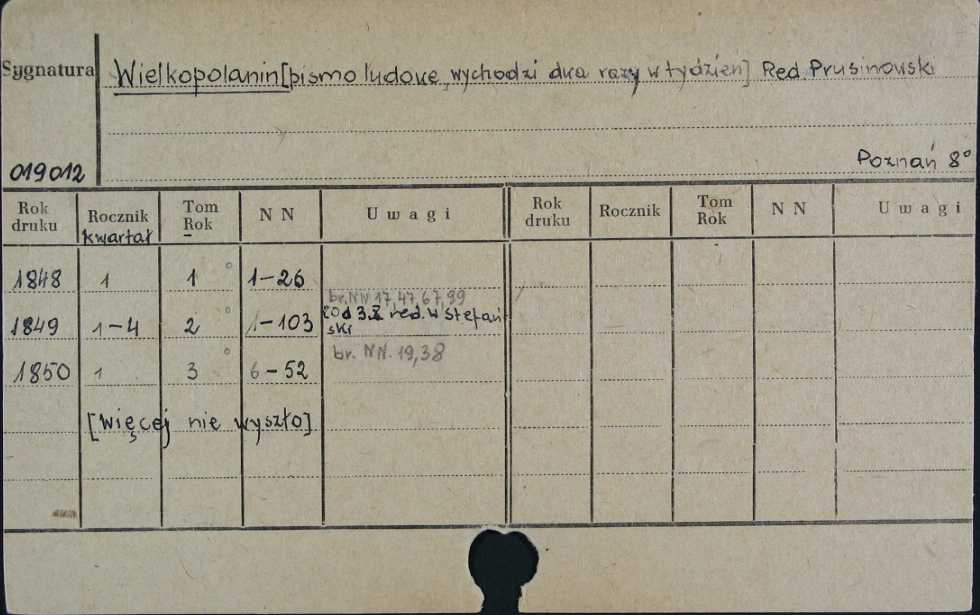 Sygnatura Wielkopolanin [pismo ludowe, wychodzi dwa razy w tydzień] Red Prusinowski
019012 Poznań 8°
Rok druku Rocznik kwartał Tom Rok NN Uwagi Rok druku Rocznik Tom Rok NN Uwagi
1848 1 1° 1-26
br. NN 17, 47, 67, 99
1849 1-4 2° 1-103 [od 3.X red. W Stefań
ski
br. NN. 19, 38
1850 1 3° 6-52
[więcej nie wyszło]